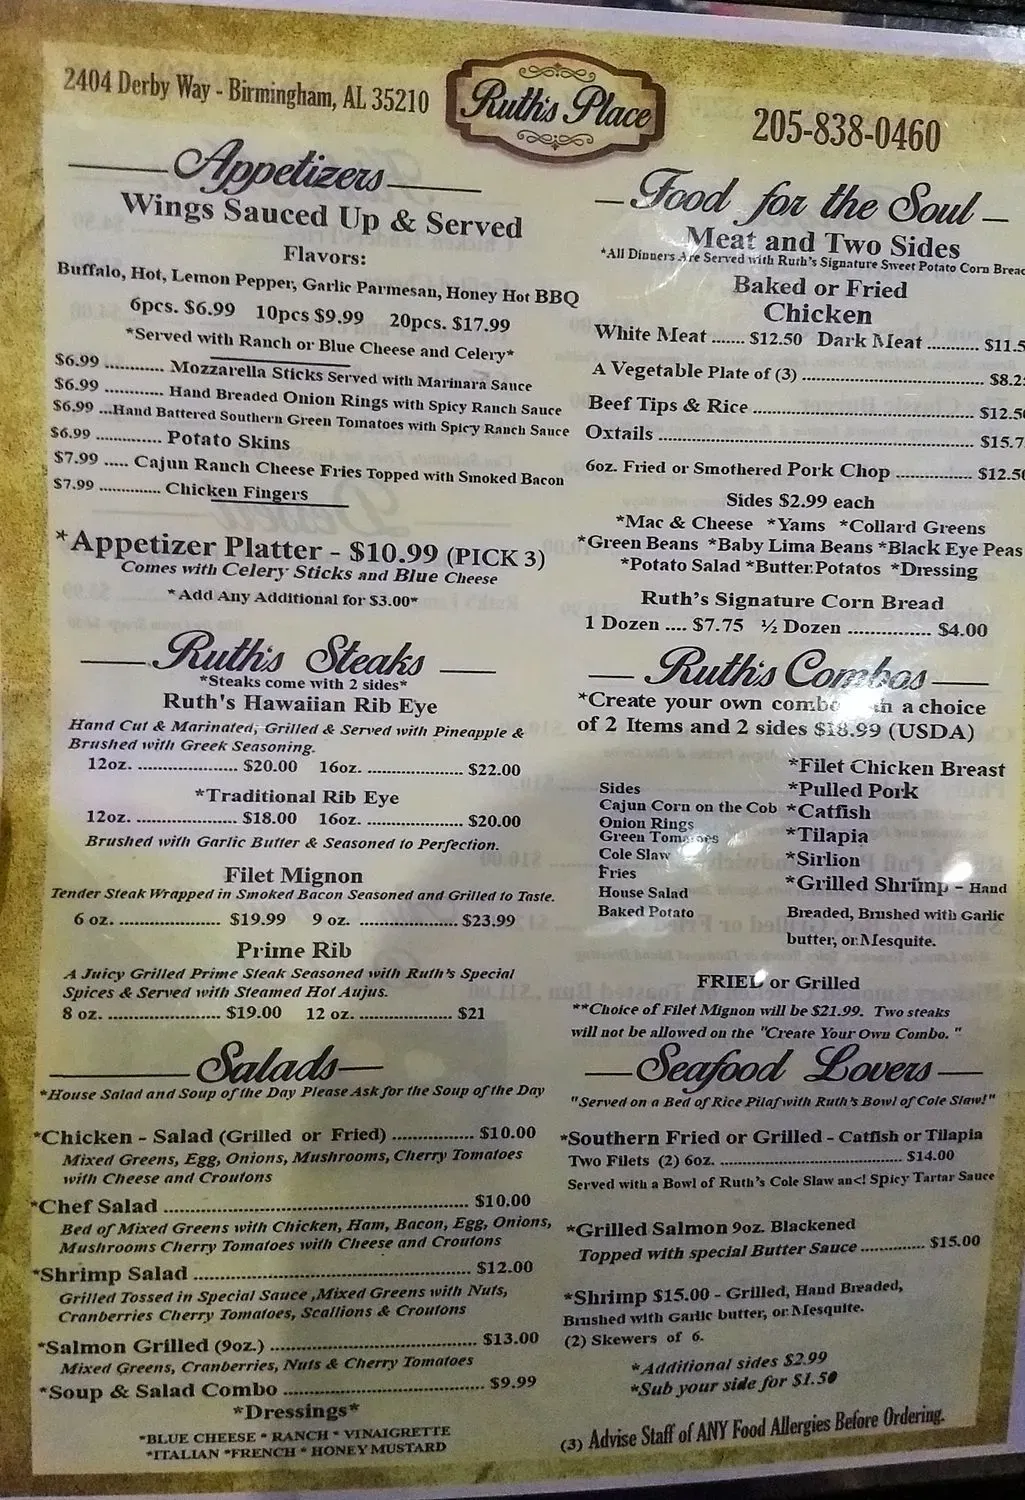 2404 Derby Way - Birmingham, AL 35210
Ruth's Place
205-838-0460
Appetizers
Wings Sauced Up & Served
Flavors:
Buffalo, Hot, Lemon Pepper, Garlic Parmesan, Honey Hot BBQ
6pcs. $6.99 10pcs $9.99 20pcs. $17.99
*Served with Ranch or Blue Cheese and Celery*
$6.99 ............ Mozzarella Sticks Served with Marinara Sauce
$6.99 ............ Hand Breaded Onion Rings with Spicy Ranch Sauce
$6.99 ...Hand Battered Southern Green Tomatoes with Spicy Ranch Sauce
$6.99 ............. Potato Skins
$7.99 ..... Cajun Ranch Cheese Fries Topped with Smoked Bacon
$7.99 ............. Chicken Fingers
*Appetizer Platter - $10.99 (PICK 3)
Comes with Celery Sticks and Blue Cheese
*Add Any Additional for $3.00*
Ruth's Steaks
*Steaks come with 2 sides*
Ruth's Hawaiian Rib Eye
Hand Cut & Marinated, Grilled & Served with Pineapple &
Brushed with Greek Seasoning.
12oz. .................... $20.00 16oz. ................... $22.00
*Traditional Rib Eye
12oz. .................... $18.00 16oz. ................... $20.00
Brushed with Garlic Butter & Seasoned to Perfection.
Filet Mignon
Tender Steak Wrapped in Smoked Bacon Seasoned and Grilled to Taste.
6 oz. .................... $19.99 9 oz. .................... $23.99
Prime Rib
A Juicy Grilled Prime Steak Seasoned with Ruth's Special
Spices & Served with Steamed Hot Aujus.
8 oz. ...................... $19.00 12 oz. .................. $21
Salads
*House Salad and Soup of the Day Please Ask for the Soup of the Day
*Chicken - Salad (Grilled or Fried) ............... $10.00
Mixed Greens, Egg, Onions, Mushrooms, Cherry Tomatoes
with Cheese and Croutons
*Chef Salad ........................................................ $10.00
Bed of Mixed Greens with Chicken, Ham, Bacon, Egg, Onions,
Mushrooms Cherry Tomatoes with Cheese and Croutons
*Shrimp Salad .................................................. $12.00
Grilled Tossed in Special Sauce ,Mixed Greens with Nuts,
Cranberries Cherry Tomatoes, Scallions & Croutons
*Salmon Grilled (9oz.) ..................................... $13.00
Mixed Greens, Cranberries, Nuts & Cherry Tomatoes
*Soup & Salad Combo .................................... $9.99
*Dressings*
*BLUE CHEESE * RANCH * VINAIGRETTE
*ITALIAN *FRENCH * HONEY MUSTARD
Food for the Soul
Meat and Two Sides
*All Dinners Are Served with Ruth's Signature Sweet Potato Corn Bread
Baked or Fried
Chicken
White Meat ....... $12.50 Dark Meat ........... $11.5
A Vegetable Plate of (3) ....................................... $8.2
Beef Tips & Rice ............................................... $12.50
Oxtails ................................................................ $15.7
6oz. Fried or Smothered Pork Chop ............... $12.50
Sides $2.99 each
*Mac & Cheese *Yams *Collard Greens
*Green Beans *Baby Lima Beans *Black Eye Peas
*Potato Salad *Butter Potatos *Dressing
Ruth's Signature Corn Bread
1 Dozen .... $7.75 ½ Dozen ................ $4.00
Ruth's Combos
*Create your own combo a choice
of 2 Items and 2 sides $18.99 (USDA)
Sides
Cajun Corn on the Cob
Onion Rings
Green Tomatoes
Cole Slaw
Fries
House Salad
Baked Potato
*Filet Chicken Breast
*Pulled Pork
*Catfish
*Tilapia
*Sirlion
*Grilled Shrimp - Hand
Breaded, Brushed with Garlic
butter, or Mesquite.
FRIED or Grilled
**Choice of Filet Mignon will be $21.99. Two steaks
will not be allowed on the "Create Your Own Combo. "
Seafood Lovers
"Served on a Bed of Rice Pilaf with Ruth's Bowl of Cole Slaw!"
*Southern Fried or Grilled - Catfish or Tilapia
Two Filets (2) 6oz. ........................................ $14.00
Served with a Bowl of Ruth's Cole Slaw an<! Spicy Tartar Sauce
*Grilled Salmon 9oz. Blackened
Topped with special Butter Sauce ............. $15.00
*Shrimp $15.00 - Grilled, Hand Breaded,
Brushed with Garlic butter, or Mesquite.
(2) Skewers of 6.
*Additional sides $2.99
*Sub your side for $1.50
(3) Advise Staff of ANY Food Allergies Before Ordering.